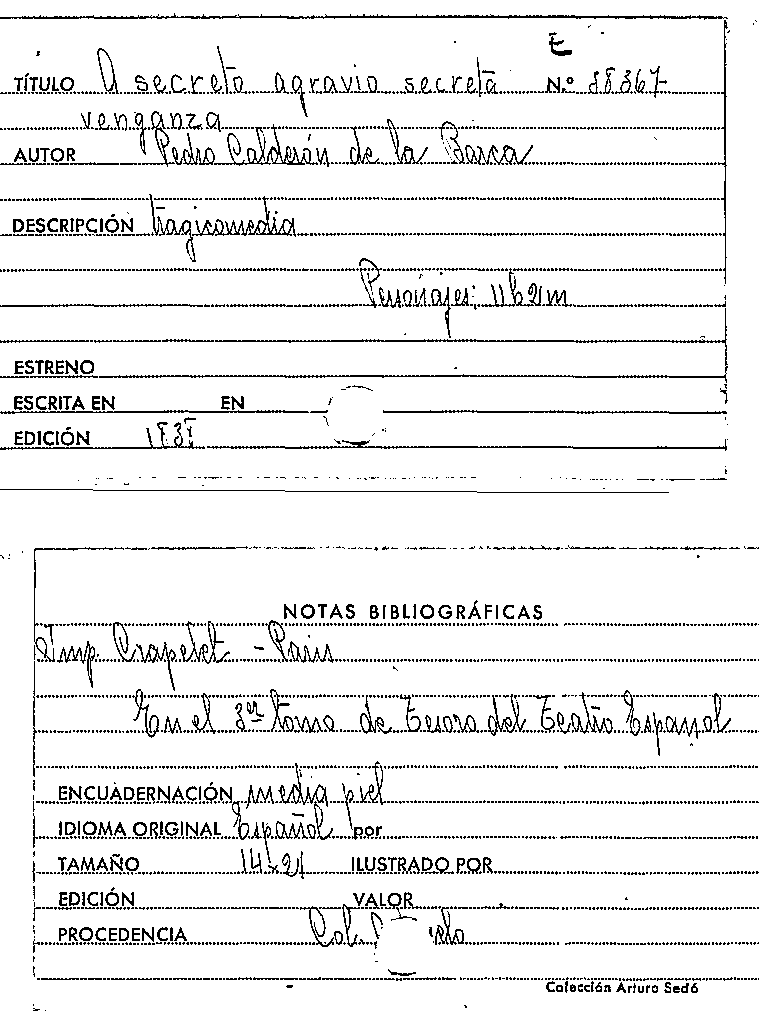 E
TÍTULO A secreto agravio secreta N.º 38367
venganza
AUTOR Pedro Calderón de la Barca
DESCRIPCIÓN tragicomedia
Personajes: 11 h 2 m
ESTRENO
ESCRITA EN EN
EDICIÓN 1838
NOTAS BIBLIOGRÁFICAS
Imp. Crapelet - Paris
En el 3er tomo de Tesoro del Teatro Español
ENCUADERNACIÓN media piel
IDIOMA ORIGINAL Español por
TAMAÑO 14x21 ILUSTRADO POR
EDICIÓN VALOR
PROCEDENCIA Col.
Colección Arturo Sedó